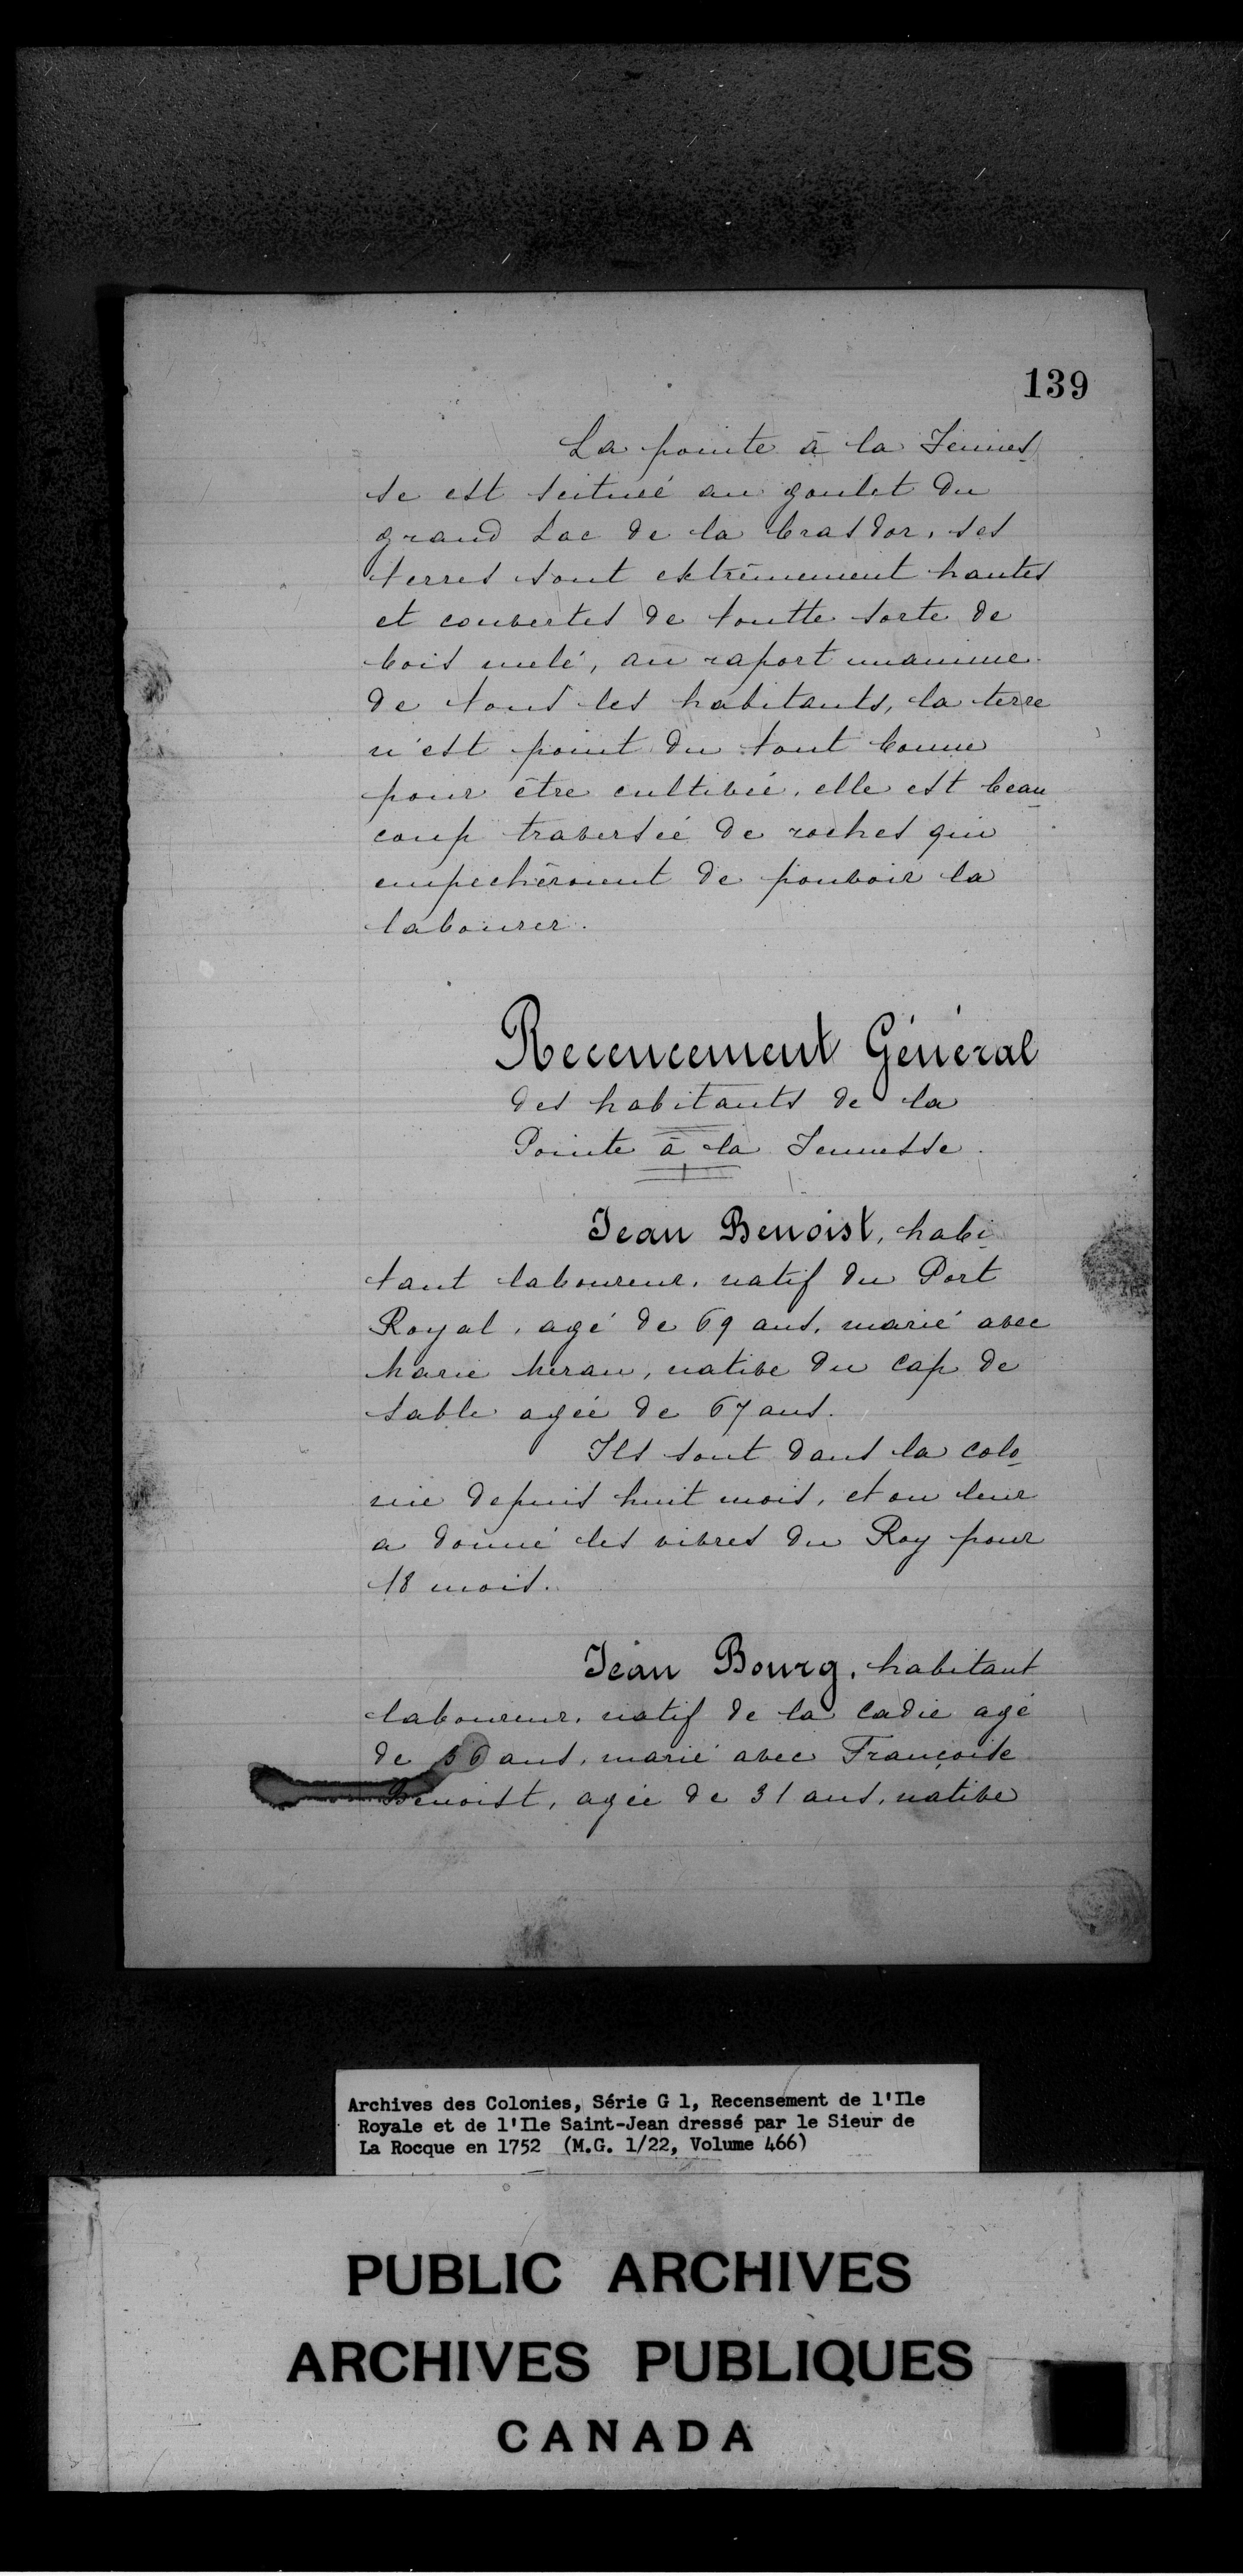 139
La pointe à la Jeunes
se est scituée au goulet du
grand Lac de la brasdor, ses
terres sont extrêmement hautes
et couvertes de toutte sorte de
bois melé, au raport unanime
de tous les habitants, la terre
n'est point du tout bonne
pour être cultivée, elle est beau
coup traversée de roches qui
empechêroient de pouvoir la
labourer.
Recencement Général
des habitants de la
Pointe à la Jeunesse.
Jean Benoist, habi
tant laboureur, natif du Port
Royal, agé de 69 ans, marié avec
Marie , native du Cap de
Sable agée de 67 ans.
Ils sont dans la colo
nie depuis huit mois, et on leur
a donné les vivres du Roy pour
18 mois.
Jean Bourg, habitant
laboureur, natif de la Cadie agé
de ans, marié avec Françoise
Benoist, agée de 31 ans, native
Archives des Colonies, Série G 1, Recensement de l'Ile
Royale et de l'Ile Saint-Jean dressé par le Sieur de
La Rocque en 1752 (M.G. 1/22, Volume 466)
PUBLIC ARCHIVES
ARCHIVES PUBLIQUES
CANADA